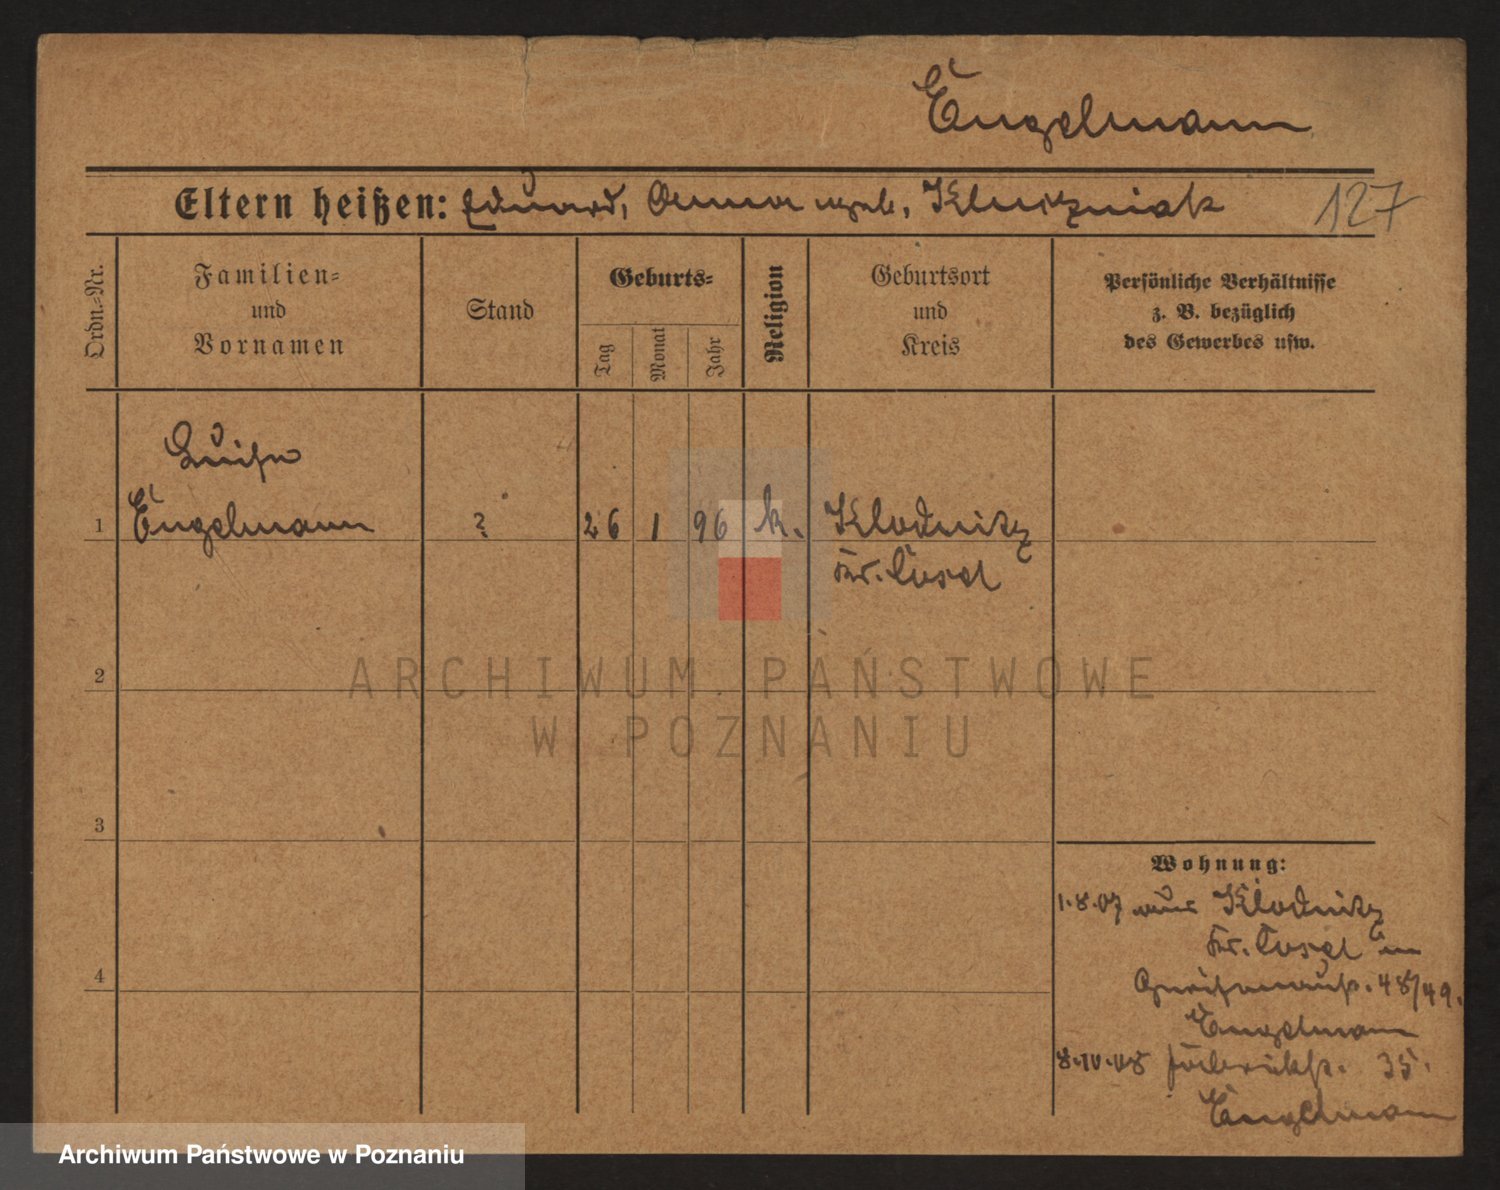 Engelmann
Eltern heißen: Eduard, Anna geb.
127
Ordn.=Nr.
Familien=
und
Vornamen
Stand
Geburts=
Tag
Monat
Jahr
Religion
Geburtsort
und
Kreis
Persönliche Verhältnisse
z. B. bezüglich
des Gewerbes usw.
Luise
1 Engelmann ? 26 1 96 k. Klodnitz
Kr. Cosel
2
ARCHIWUM PAŃSTWOWE
W POZNANIU
3
Wohnung:
1.8.07 aus Klodnitz
Kr. Cosel in
4
48/49.
Engelmann
8.10.08 35.
Engelmann
Archiwum Państwowe w Poznaniu